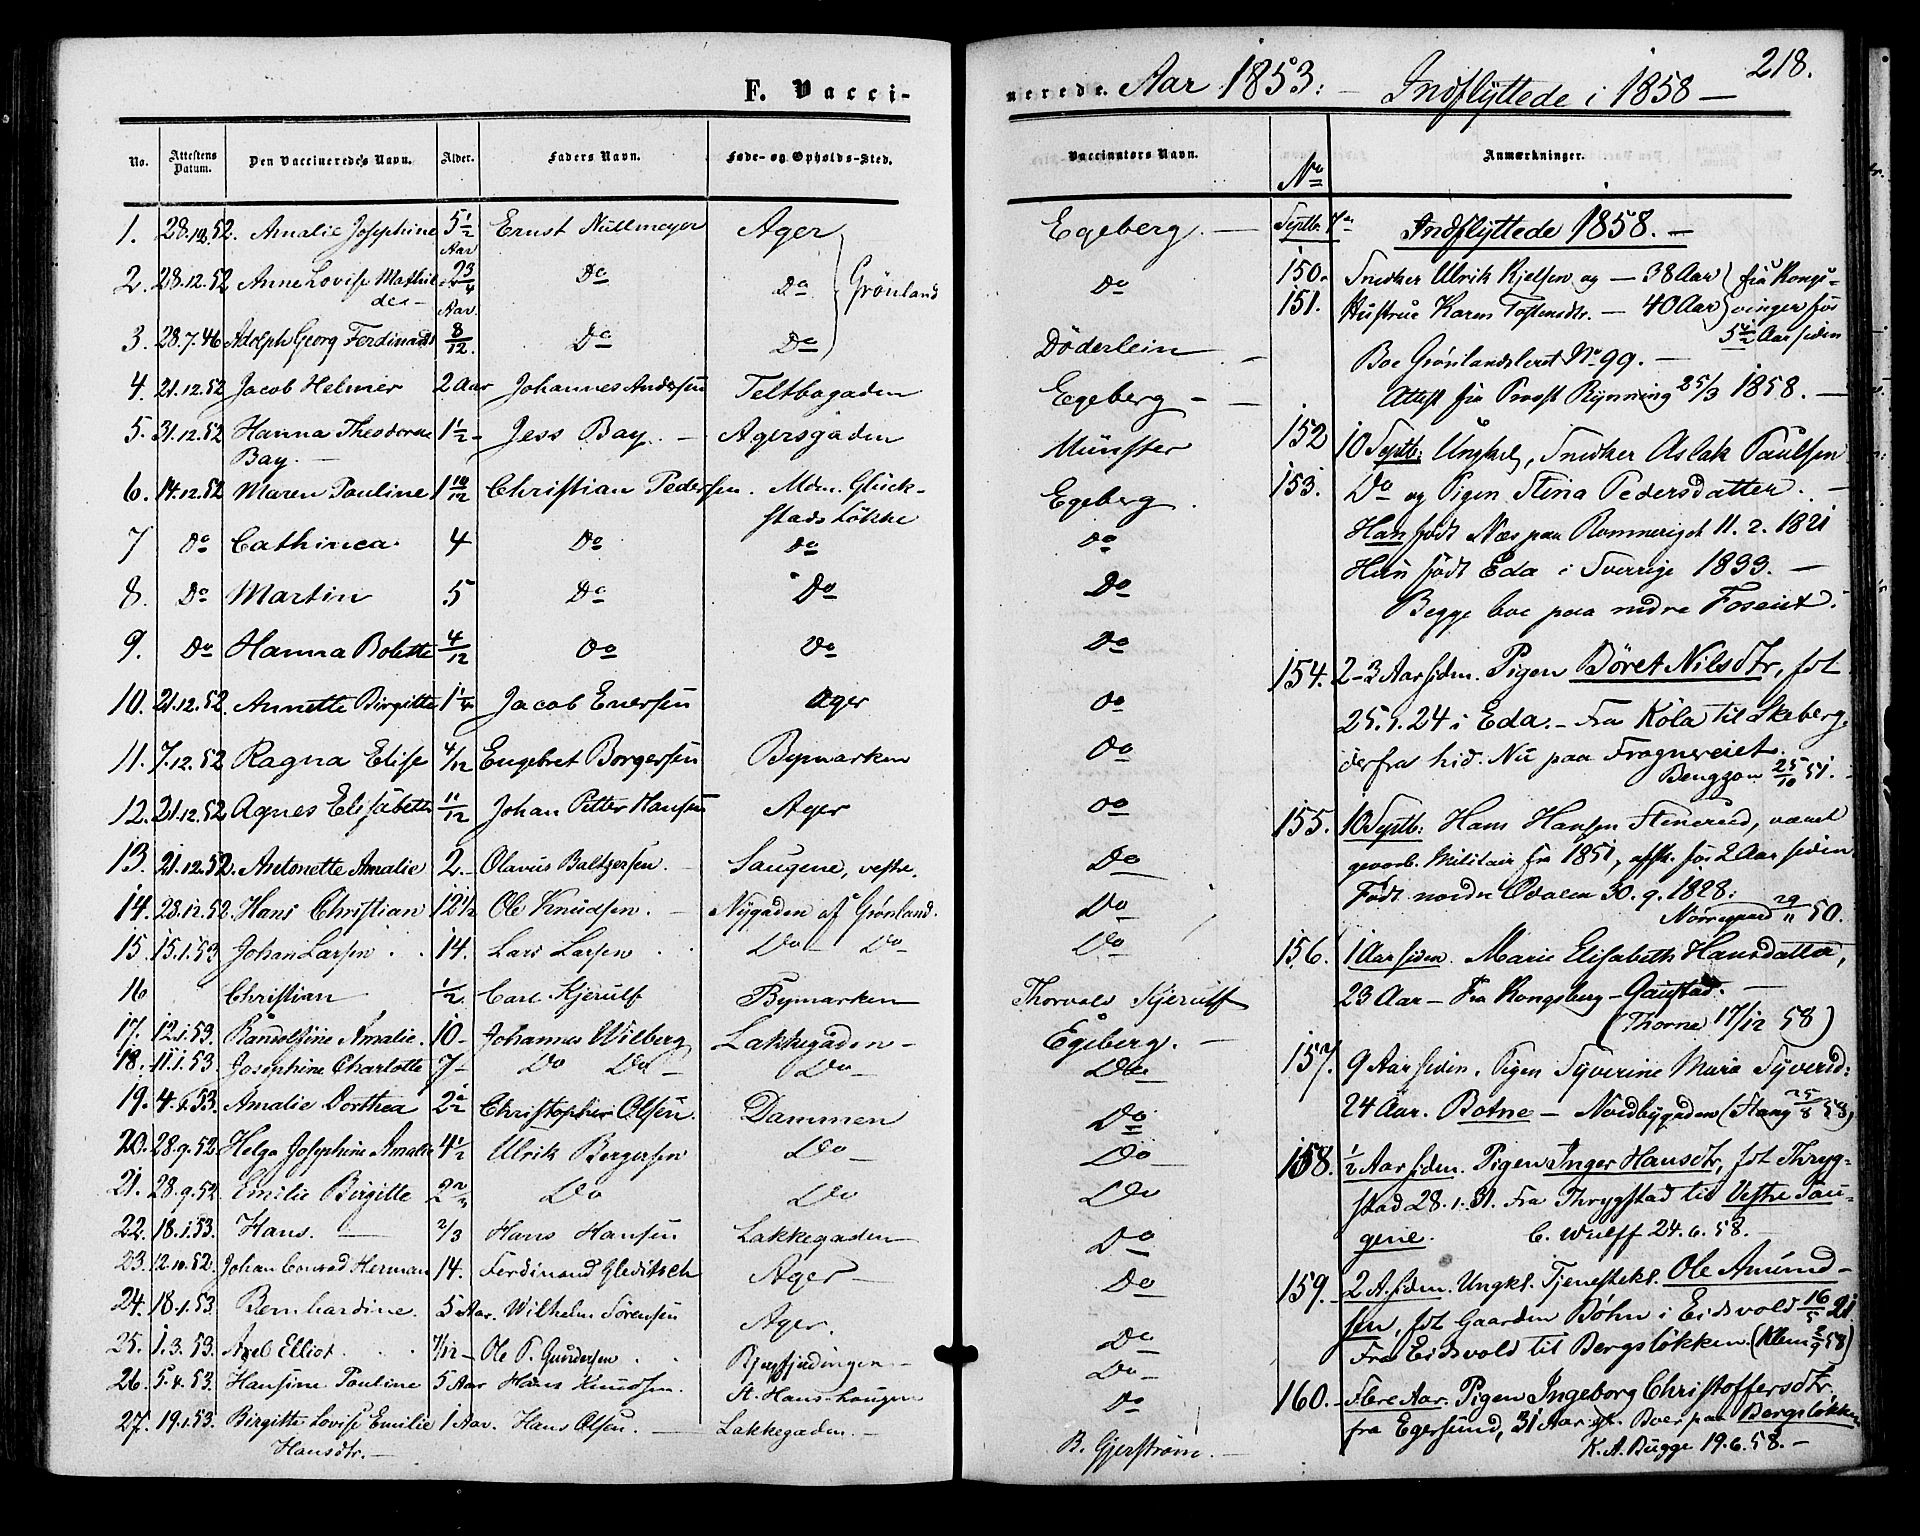 F. Vacci-
No. Attestens Datum. Den Vaccineredes Navn. Alder. Faders Navn. Føde- og Opholds-Sted.
1. 28.12.52. Amalie Josephine 5 1/2 Aar Ernst Nullmeyer Ager
2. 28.12.52 Anne Lovise Mathil- 2 3/4 Do Do Grønland
des - Aar.
3. 28.7.46 Adolph Georg Ferdinands 8/12. Do Do
4. 21.12.52 Jacob Helmer 2 Aar Johannes Andersen Teltbogaden
5. 31.12.52 Hanna Theodorea 1 1/2 - Jess Bay. - Agersgaden
Bay. -
6. 14.12.52 Maren Pauline 1 10/12 Christian Pedersen. Mdm. Glück-
stads Løkke
7 Do Cathinca 4 Do Do
8. Do Martin 5 Do Do
9. Do Hanna Bolette 4/12 Do Do
10. 21.12.52. Annette Birgitte 1 1/4 Jacob Enersen Ager
11. 7.12.52 Ragna Elise 4/12 Engebret Borgersen Bymarken
12. 21.12.52 Agnes Elisabeth 11/12 Johan Petter Hansen Ager
13. 21.12.52. Antonette Amalie 2. - Olavus Baltzersen - Saugene, vestre.
14. 28.12.52 Hans Christian 12 1/2 Ole Knudsen. - Nygaden af Grønland.
15. 15.1.53 Johan Larsen 14. Lars Larsen Do - Do
16 Christian 1/2. Carl Kjerulf Bymarken
17. 12.1.53. Randolfine Amalie. 10 - Johannes Wilberg Lakkegaden -
18. 11.1.53. Josephine Charlotte 7 - Do Do Do
19. 4.1.53. Amalie Dorthea 2 1/2 Christopher Olsen. Dammen
20. 28.9.52 Helga Josephine Amalie 4 1/2 Ulrik Bergersen Do -
21. 28.9.52. Emilie Birgitte 2 2/3 Do Do
22. 18.1.53. Hans. - 2/3 Hans Hansen Lakkegaden
23. 12.10.52. Johan Conrad Herman 14. Ferdinand Gleditsch Ager -
24. 18.1.53. Bernhardine. 5 Aar. Wilhelm Sörensen Ager.
25. 1.3.53. Axel Elliot 7/12 - Ole P. Gundersen
26. 5.4.53. Hansine Pauline 5 Aar Hans Knudsen. St. Hans-haugen
27. 19.1.53. Birgitte Lovise Emilie 1 Aar. Hans Olsen. - Lakkegaden. -
Hansdtr. -
218.
nerede. Aar 1853. - Indflyttede i 1858 -
Vaccinators Navn. No Anmærkninger.
Egeberg. - Septb. Indflyttede 1858. -
Do 150. Snedker Ulrik Kjelsen og - 38 Aar fra Kongs-
151. Hustrue Karen Tostensdtr. - 40 Aar vinger for
5 1/2 Aar siden
Döderlein - Boe Grønlandsleret No 99. -
Egeberg - - Attest fra Provst Rynning 25/3 1858. -
Münster 152 10 Septb: Ungkel, Snedker Aslak Paulsen
Egeberg. 153. Do og Pigen Stina Pedersdatter. -
Do Han født Næs paa Romeriget 11.2.1821
Do Hun født Eda i Sverrige 1833. -
Begge boe paa nedre Foseiet.
Do 154. 2-3 Aar siden. Pigen Böret Nilsdtr, fdt
Do 25.1.24 i Eda. - Fra Köla til Skeberg.
Do derfra hid. Nu paa Frogner eiet.
Benggon 25/10 51. -
Do 155. 10 Septb: Hans Hansen Stenerud, været
Do gevorb. Militair fra 1851, afsk. for 2 Aar siden.
Do Født nordre Odalen 30.9.1828:
Nörregaard 29/11 50.
Do 156. 1 Aar siden. Marie Elisabeth Hansdatter,
Thorvald Kjerulf 23 Aar - Fra Kongsberg - Gaustad. -
(Thorne 17/12 58)
Egeberg. - 157. 9 Aar siden. Pigen Syverine Marie Syversd:
Do 24 Aar. Botne - Nordbygaden (Stang 25/8 58)
Do
Do - 158. 1/2 Aar siden. Pigen Inger Hansdtr, fdt Thryg-
Do stad 28.1.31. Fra Thrygstad til Vestre Sau-
Do gene. C. Wulff 24.6.58. -
Do 159. 2 A. siden. Ungkl. Tjenestekl. Ole Amund-
Do sen, fdt Gaarden Bøhn i Eidsvold 16/5 21.
Do - Fra Eidsvold til Bergsløkken.
Do 160. Flere Aar. Pigen Ingeborg Christoffersdtr.
fra Egersund, 31 Aar gl. Boer paa Bergsløkken
B. Gjerström. - K. A. Bugge 19.6.58. -